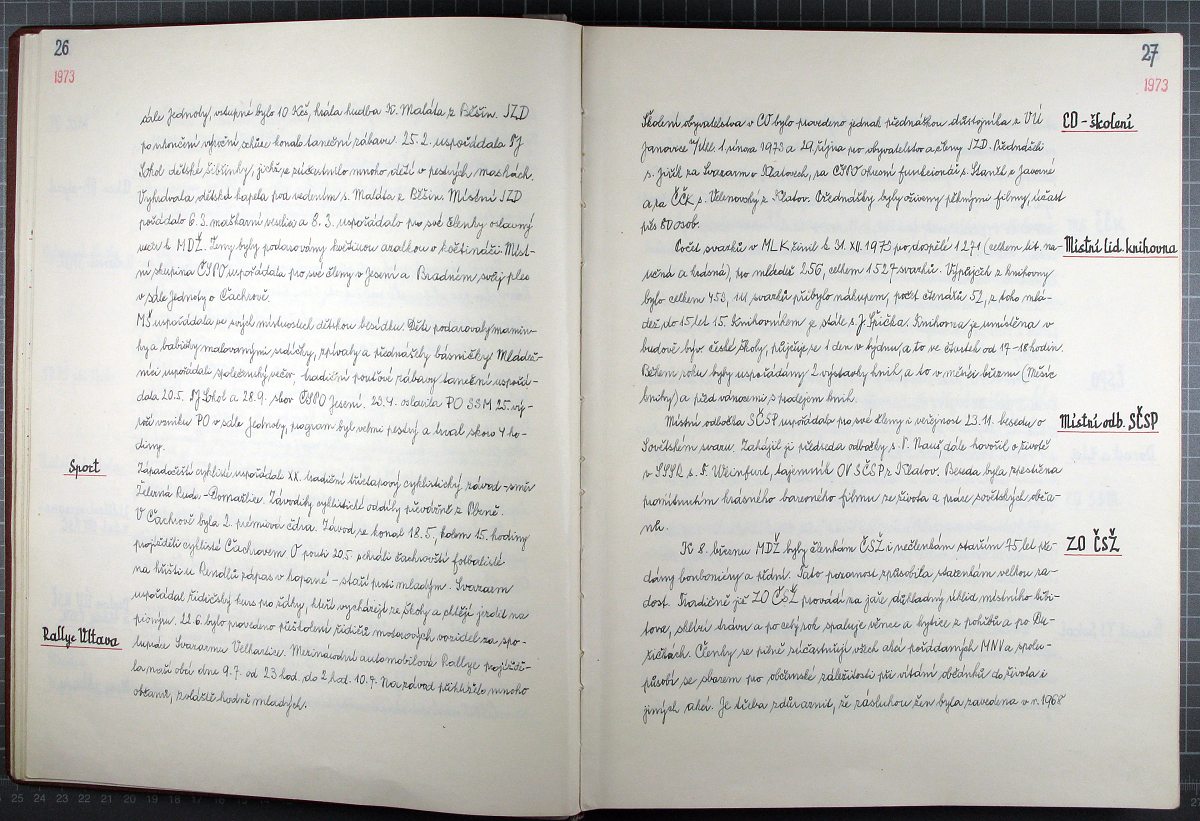 26
1973
sále Jednoty, vstupné bylo 10 Kčs, hrála hudba K. Maláta z Běšin. JZD
po ukončení výroční schůze konalo taneční zábavu. 25.2. uspořádala TJ
Sokol dětské šibřinky, jichž se zúčastnilo mnoho dětí v pestrých maskách.
Vyhrávala dětská kapela pod vedením s. Maláta z Běšin. Místní JZD
pořádalo 6.3. maškarní merendu a 8.3. uspořádalo pro své členky oslavný
večer k MDŽ. Ženy byly podarovány květinou azalkou v květináči. Míst-
ní skupina ČSPO uspořádala pro své členy v Jesení a Bradném svůj ples
v sále Jednoty v Čachrově.
MŠ uspořádala ve svých místnostech dětskou besídku. Děti podarovaly mamin-
ky a babičky malovanými srdíčky, zpívaly a přednášely básničky. Mládež-
níci uspořádali společenský večer. Tradiční pouťové zábavy taneční uspořá-
dala 20.5. TJ Sokol a 28.9. sbor ČSPO Jesení. 23.4. oslavila PO SSM 25. vý-
ročí vzniku PO v sále Jednoty, program byl velmi pestrý a trval skoro 4 ho-
diny.
Sport
Západočeští cyklisté uspořádali XX. tradiční tříetapový cyklistický závod - směr
Železná Ruda - Domažlice. Závodníky cyklistické oddíly převážně z Plzně.
V Čachrově byla 2. prémiová čára. Závod se konal 18.5., kolem 15. hodiny
projížděli cyklisté Čachrovem. O pouti 20.5. sehráli čachrovští fotbalisté
na hřišti u Rendlů zápas v kopané - staří proti mladým. Svazarm
uspořádal řidičský kurs pro žáky, kteří vycházejí ze školy a chtějí jezdit na
pionýru. 22.6. bylo provedeno přeškolení řidičů motorových vozidel za spo-
Rallye Vltava
lupráce Svazarmu Velhartice. Mezinárodní automobilová Rallye projížďě-
la naší obcí dne 9.7. od 23 hod. do 2 hod. 10.7. Na závod přihlíželo mnoho
občanů, zvláště hodně mladých.
27
1973
CO - školení
Školení obyvatelstva v CO bylo provedeno jednak přednáškou důstojníka z VÚ
Janovice n/Úhl. 1. února 1973 a 29. října pro obyvatelstvo a členy JZD. Přednášeli
s. Jirák za Svazarm v Klatovech, za ČSPO okresní funkcionář s. Stanžl z Javorné
a za ČČK s. Velenovský z Klatov. Přednášky byly oživeny pěknými filmy, účast
přes 80 osob.
Místní lid. knihovna
Počet svazků v MLK činil k 31. XII. 1973 pro dospělé 1271 (celkem lit. na-
učná a krásná), pro mládež 256, celkem 1527 svazků. Výpůjček z knihovny
bylo celkem 453, 111 svazků přibylo nákupem, počet čtenářů 52, z toho mlá-
dež do 15 let 15. Knihovníkem je stále s. J. Špička. Knihovna je umístěna v
budově býv. české školy, půjčuje se 1 den v týdnu, a to ve čtvrtek od 17-18 hodin.
Během roku byly uspořádány 2 výstavky knih, a to v měsíci březnu (Měsíc
knihy) a před vánocemi s prodejem knih.
Místní odb. SČSP
Místní odbočka SČSP uspořádala pro své členy i veřejnost 23.11. besedu o
Sovětském svazu. Zahájil ji předseda odbočky s. V. Nauš, dále hovořil o životě
v SSSR s. F. Weinfurt, tajemník OV SČSP z Klatov. Beseda byla zpestřena
promítnutím krásného barevného filmu ze života a práce sovětských obča-
nů.
ZO ČSŽ
K 8. březnu MDŽ byly členkám ČSŽ i nečlenkám starším 75 let pře-
dány bonboniéry a přání. Tato pozornost způsobila stařenkám velkou ra-
dost. Tradičně již ZO ČSŽ provádí na jaře důkladný úklid místního hřbi-
tova, sklízí trávu a po celý rok spaluje věnce a kytice z pohřbů a po Du-
šičkách. Členky se pilně zúčastňují všech akcí pořádaných MNV a spolu-
působí se sborem pro občanské záležitosti při vítání občánků do života i
jiných akcí. Je třeba zdůraznit, že zásluhou žen byla zavedena v r. 1968